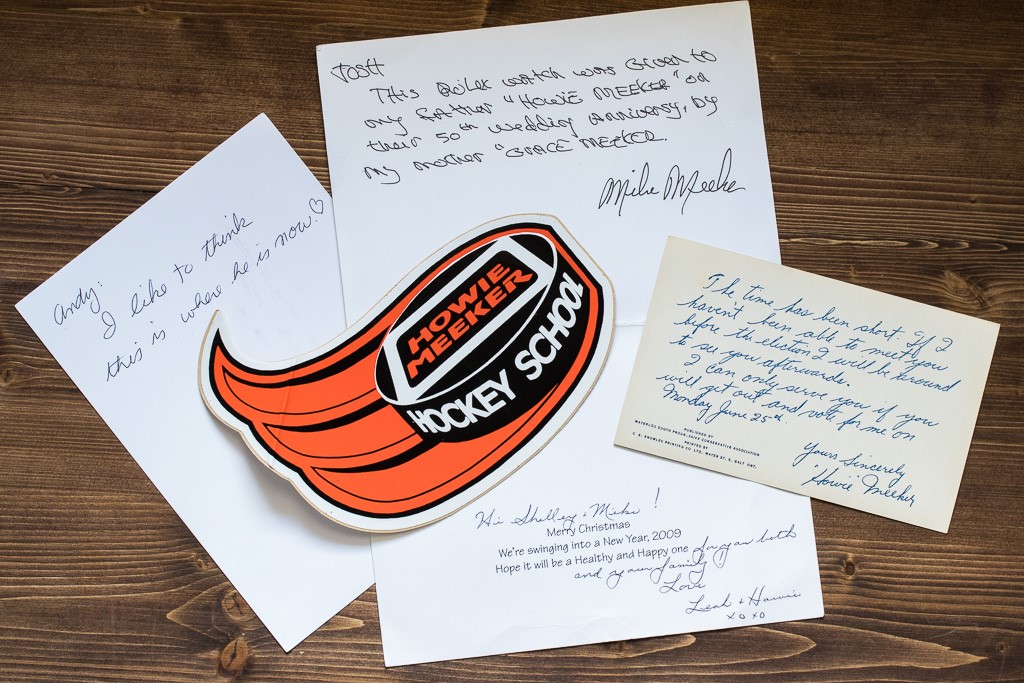 JOSH
THIS ROLEX WATCH WAS GIVEN TO
my FATHER "HOWIE MEEKER" ON
their 50th wedding Anniversy, by
my mother "GRACE MEEKER.
Mike Meeker
Andy:
I like to think
this is where he is now!♡
HOWIE
MEEKER
HOCKEY SCHOOL
The time has been short. If I
haven't been able to meet you
before the election I will be around
to see you afterwards.
I can only serve you if you
will get out and vote for me on
Monday June 25th.
Yours Sincerely
"Howie" Meeker
PUBLISHED BY
WATERLOO SOUTH PROGRESSIVE CONSERVATIVE ASSOCIATION
PRINTED BY
C. R. KNOWLES PRINTING CO. LTD. WATER ST. S. GALT ONT.
Hi Shelley & Mike!
Merry Christmas
We're swinging into a New Year, 2009
Hope it will be a Healthy and Happy one for you both
and your family
Love
Leah & Howie
xoxo